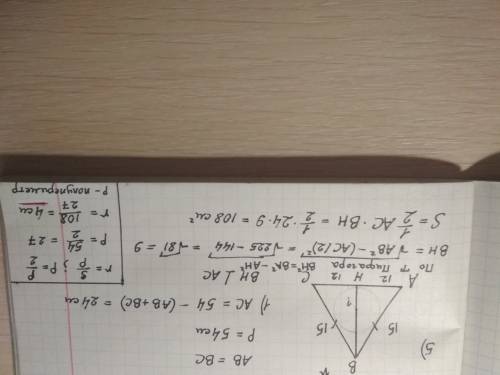 5)
B
15
15
?
12
12
A
H
C
AB = BC
P = 54 см
1) AC = 54 - (AB+BC) = 24 см
BH ⊥ AC
По т Пифагора BH²=BA²-AH²
BH = √AB²-(AC/2)² = √225-144 = √81 = 9
S = 1/2 AC · BH = 1/2 · 24 · 9 = 108 см²
r = S/p ; p = P/2
p = 54/2 = 27
r = 108/27 = 4 см
p - полупериметр